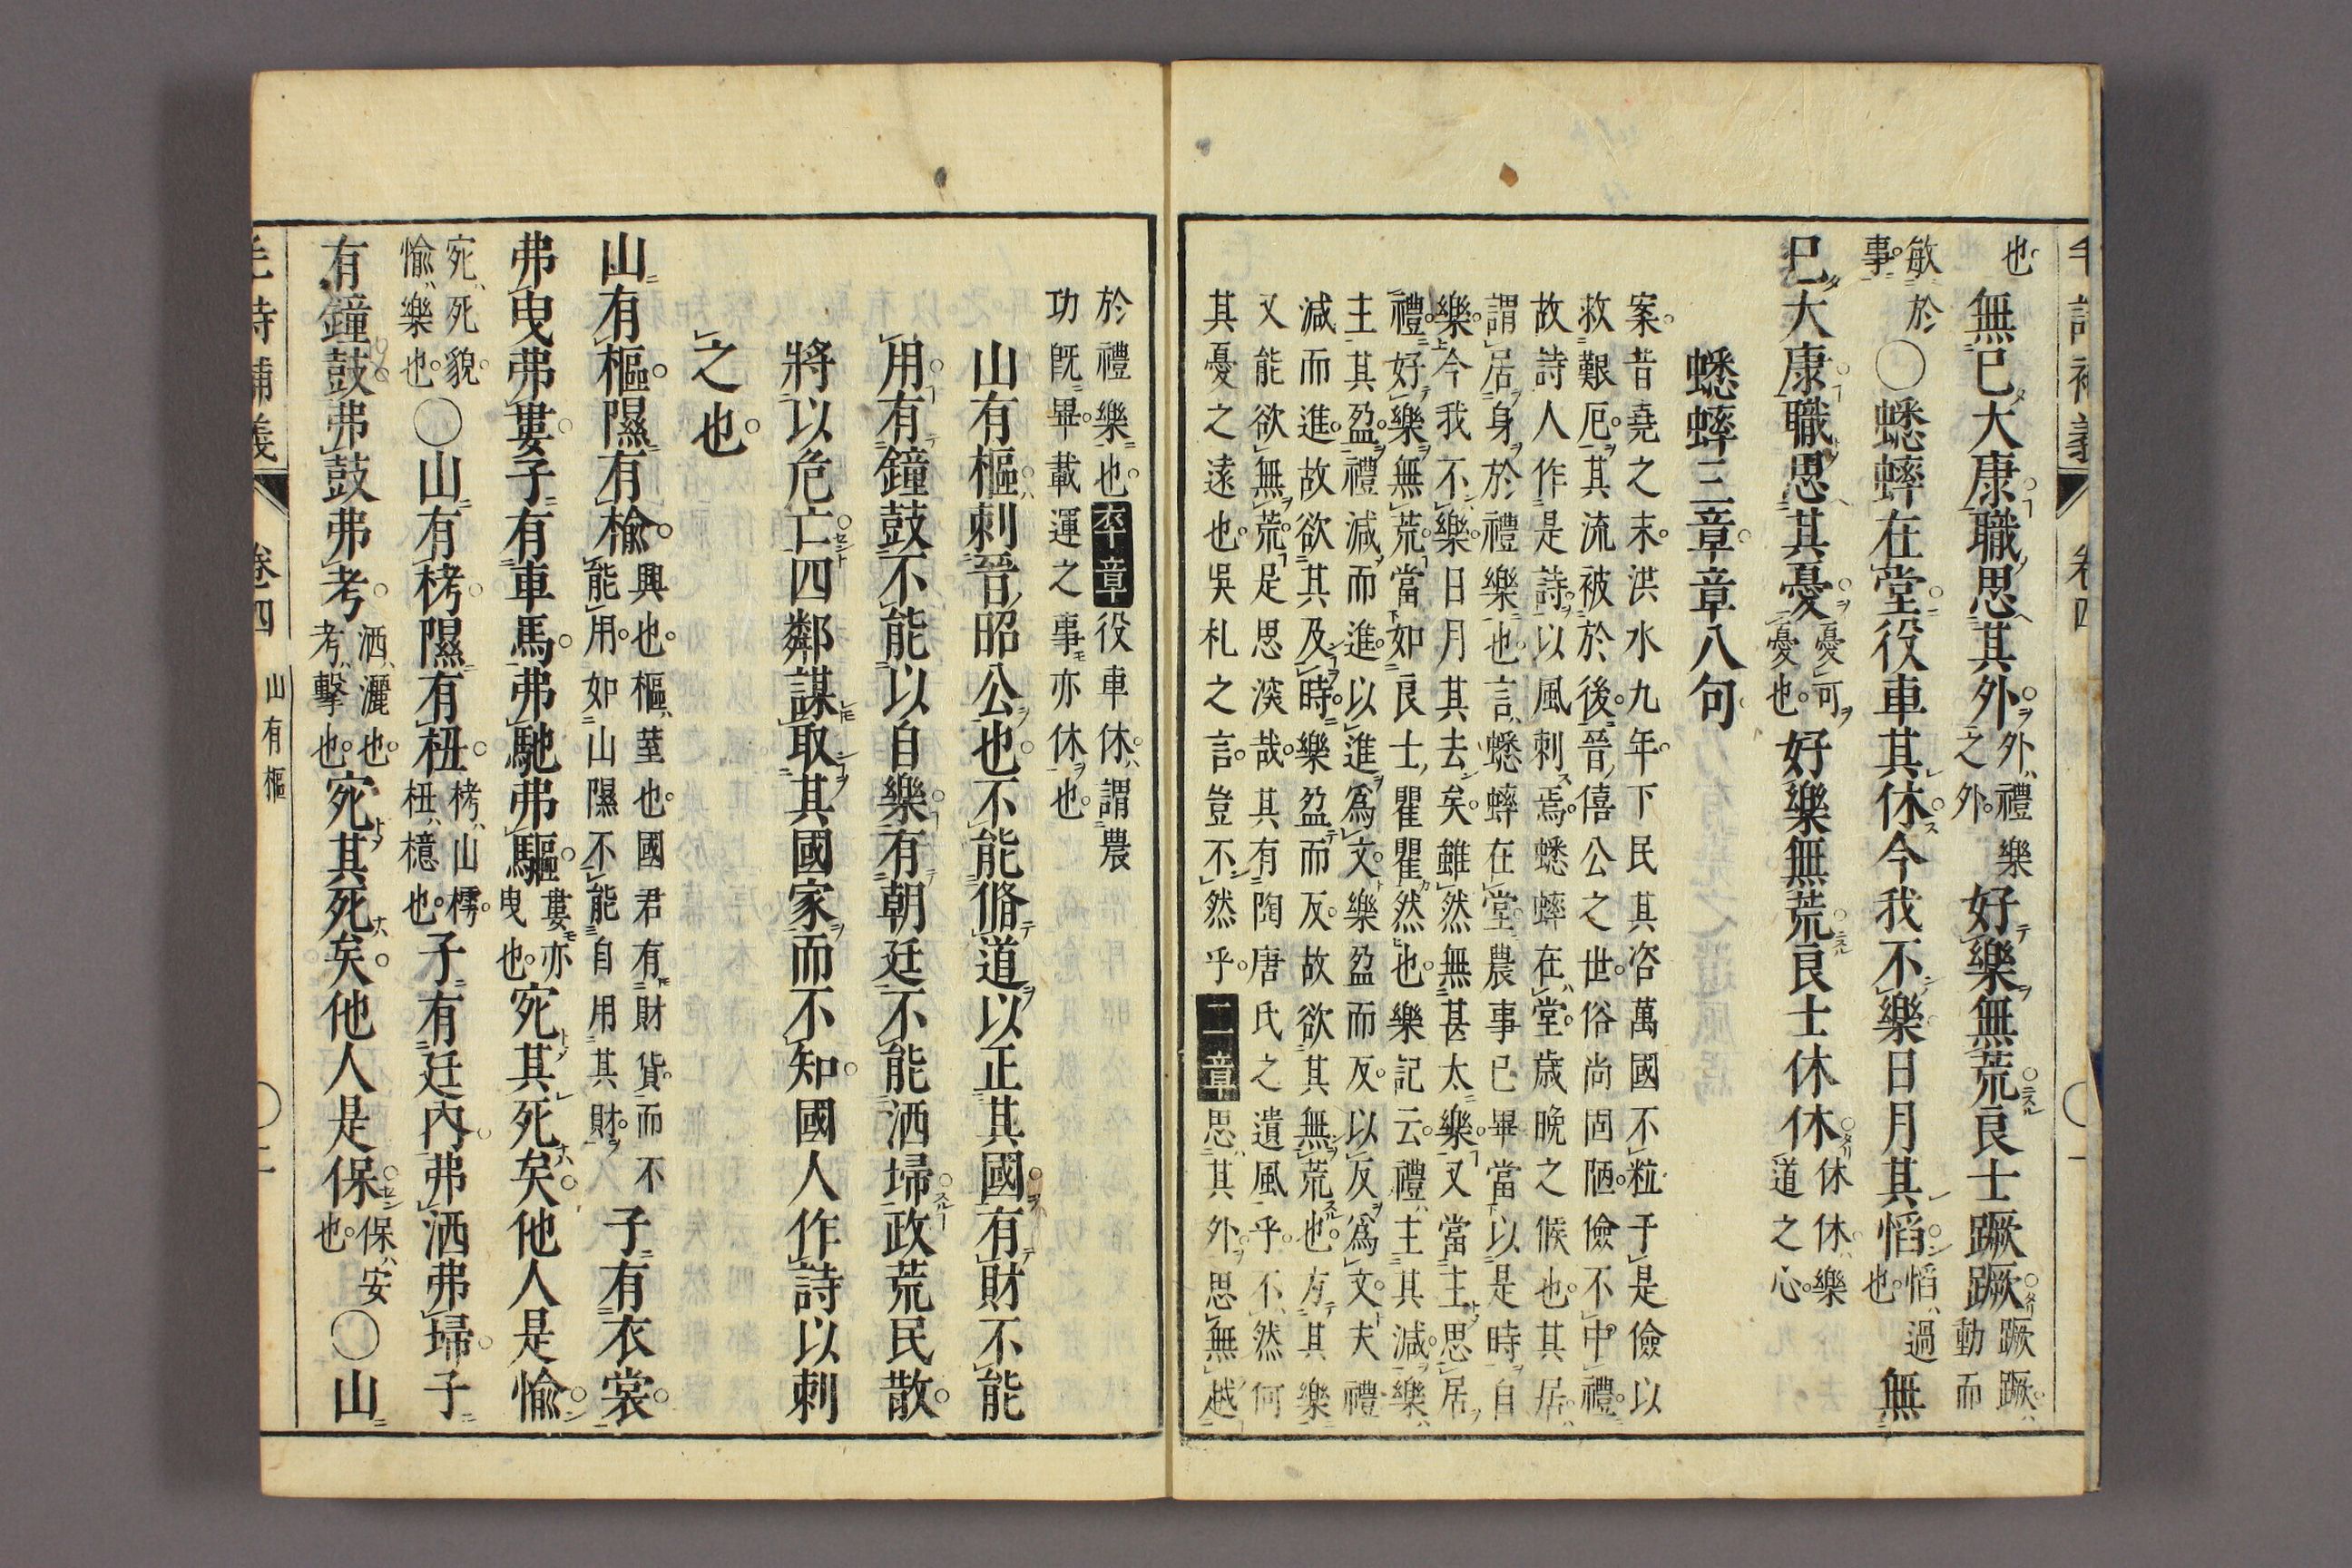 毛詩補義 卷四
也無已大康職思其外外禮樂之外好樂無荒良士蹶蹶蹶蹶動而
敏於事〇蟋蟀在堂役車其休今我不樂日月其慆慆過也無
已大康職思其憂憂可憂也好樂無荒良士休休休休樂道之心
蟋蟀三章章八句
案昔堯之末洪水九年下民其咨萬國不粒于是儉以
救艱厄其流被於後晉僖公之世俗尚固陋儉不中禮
故詩人作是詩以風刺焉蟋蟀在堂歳晚之候也其居
謂居身於禮樂也言蟋蟀在堂農事已畢當以是時自
樂今我不樂日月其去矣雖然無甚太樂又當主思居
禮好樂無荒當如良士瞿瞿然也樂記云禮主其減樂
主其盈禮減而進以進爲文樂盈而反以反爲文夫禮
減而進故欲其及時樂盈而反故欲其無荒也方其樂
又能欲無荒足思深哉其有陶唐氏之遺風乎不然何
其憂之遠也吳札之言豈不然乎二章思其外思無越
於禮樂也卒章役車休謂農
功既畢載運之事亦休也
山有樞刺晉昭公也不能脩道以正其國有財不能
用有鐘鼓不能以自樂有朝廷不能洒埽政荒民散
將以危亡四鄰謀取其國家而不知國人作詩以刺
之也
山有樞隰有榆興也樞荎也國君有財貨而不能用如山隰不能自用其財子有衣裳
弗曳弗婁子有車馬弗馳弗驅婁亦曳也宛其死矣他人是愉
宛死貌愉樂也〇山有栲隰有杻栲山樗杻檍也子有廷內弗洒弗埽子
有鐘鼓弗鼓弗考洒灑也考擊也宛其死矣他人是保保安也〇山
毛詩補義 卷四 山有樞 〇二